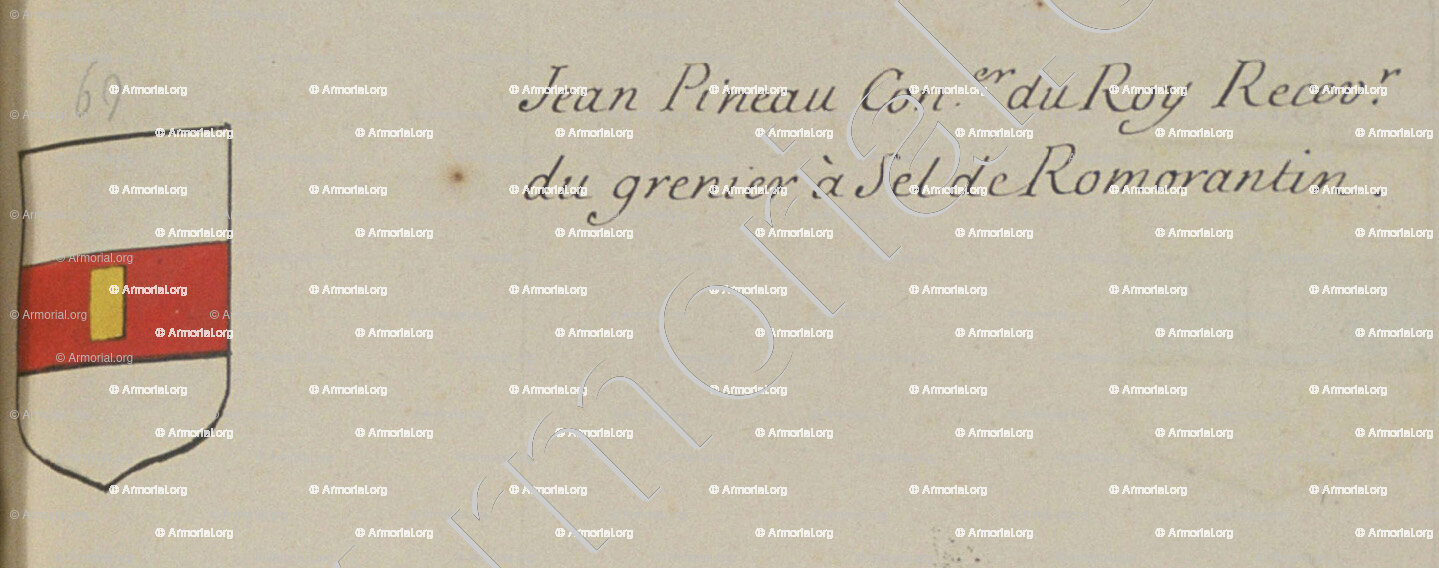 69
Jean Pineau Con.er du Roy Recev.r
du grenier à Sel de Romorantin.
© Armorial.org
armorial